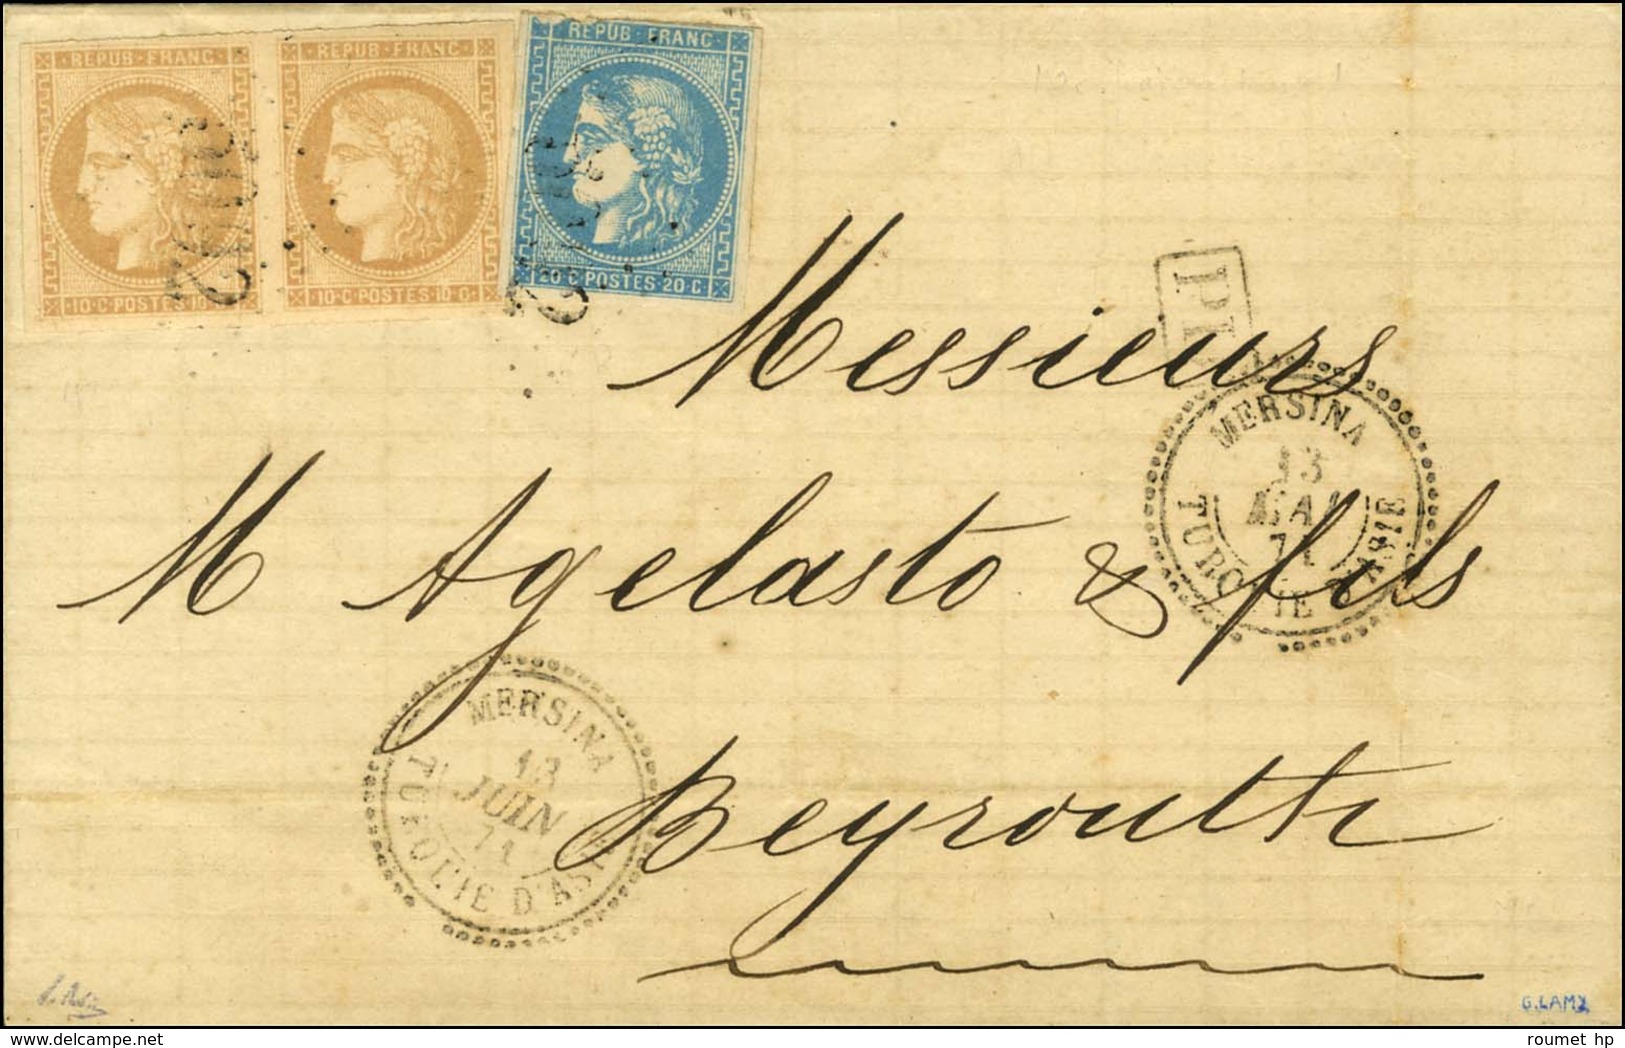 REPUB·FRANC
REPUB·FRANC
REPUB·FRANC
10·C·POSTES·10·C
10·C·POSTES·10·C
20·C·POSTES·20·C
Messieurs
MERSINA
13
MAI
71
TURQUIE D'ASIE
M Agelasto & fils
MERSINA
13
JUIN
71
TURQUIE D'ASIE
Beyrouth
G.LAMY
www.delcampe.net
roumet hp